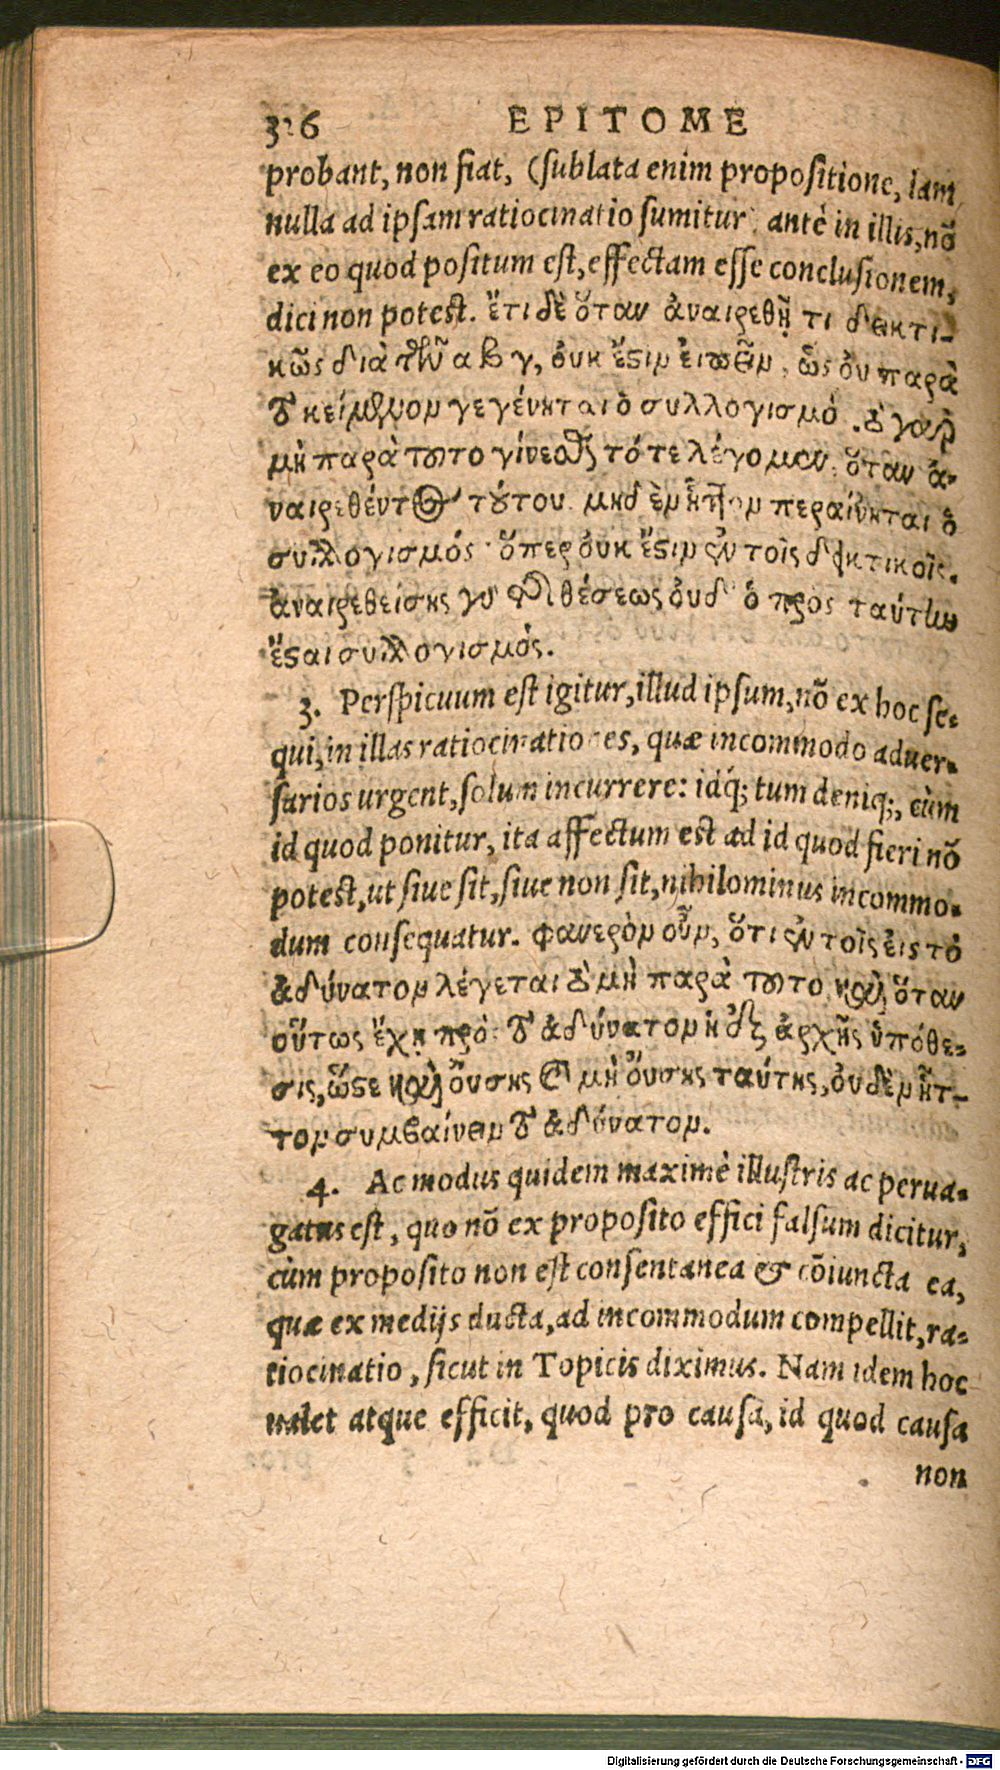 326 EPITOME
probant, non fiat, (sublata enim propositione, iam
nulla ad ipsam ratiocinatio sumitur: antè in illis, nõ
ex eo quod positum est, effectam esse conclusionem,
dici non potest. ἔτι δὲ ὅταν ἀναιρεθῇ τι δεικτι-
κῶς διὰ τῶν α β γ, οὐκ ἔστιν εἰπεῖν, ὡς οὐ παρὰ
τὸ κείμενον γεγένηται ὁ συλλογισμός. τὸ γὰρ
μὴ παρὰ τοῦτο γίνεσθαι τότε λέγομεν, ὅταν ἀ-
ναιρεθέντος τούτου μηδὲν ἧττον περαίνηται ὁ
συλλογισμός· ὅπερ οὐκ ἔστιν ἐν τοῖς δεικτικοῖς.
ἀναιρεθείσης γὸ τῆς θέσεως οὐδ' ὁ πρὸς ταύτην
ἔσται συλλογισμός.
3. Perspicuum est igitur, illud ipsum, nõ ex hoc se-
qui, in illas ratiocinationes, quæ incommodo aduer-
sarios urgent, solum incurrere: idq; tum deniq;, cùm
id quod ponitur, ita affectum est ad id quod fieri nõ
potest, ut siue sit, siue non sit, nihilominus incommo-
dum consequatur. φανερὸν οὖν, ὅτι ἐν τοῖς εἰς τὸ
ἀδύνατον λέγεται τὸ μὴ παρὰ τοῦτο καὶ ὅταν
οὕτως ἔχῃ πρὸς τὸ ἀδύνατον ἡ ἐξ ἀρχῆς ὑπόθε-
σις, ὥστε καὶ οὔσης καὶ μὴ οὔσης ταύτης, οὐδὲν ἧτ-
τον συμβαίνειν τὸ ἀδύνατον.
4. Ac modus quidem maximè illustris ac perua-
gatus est, quo nõ ex proposito effici falsum dicitur,
cùm proposito non est consentanea & cõiuncta ea,
quæ ex medijs ducta, ad incommodum compellit, ra-
tiocinatio, sicut in Topicis diximus. Nam idem hoc
ualet atque efficit, quod pro causa, id quod causa
non
Digitalisierung gefördert durch die Deutsche Forschungsgemeinschaft - DFG